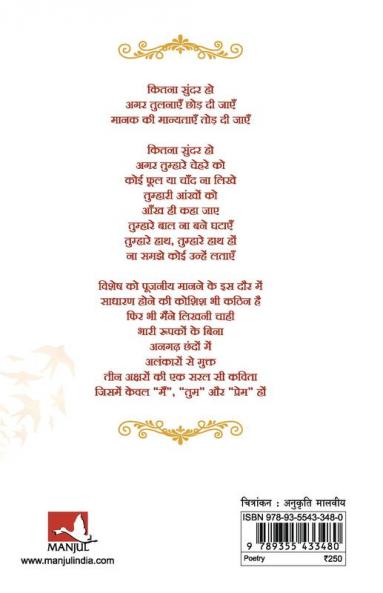 कितना सुंदर हो
अगर तुलनाएँ छोड़ दी जाएँ
मानक की मान्यताएँ तोड़ दी जाएँ
कितना सुंदर हो
अगर तुम्हारे चेहरे को
कोई फूल या चाँद ना लिखे
तुम्हारी आंखों को
आँख ही कहा जाए
तुम्हारे बाल ना बने घटाएँ
तुम्हारे हाथ, तुम्हारे हाथ हों
ना समझे कोई उन्हें लताएँ
विशेष को पूजनीय मानने के इस दौर में
साधारण होने की कोशिश भी कठिन है
फिर भी मैंने लिखनी चाही
भारी रूपकों के बिना
अनगढ़ छंदों में
अलंकारों से मुक्त
तीन अक्षरों की एक सरल सी कविता
जिसमें केवल “मैं”, “तुम” और “प्रेम” हों
MANJUL
www.manjulindia.com
चित्रांकन : अनुकृति मालवीय
ISBN 978-93-5543-348-0
9 789355 433480
Poetry ₹250